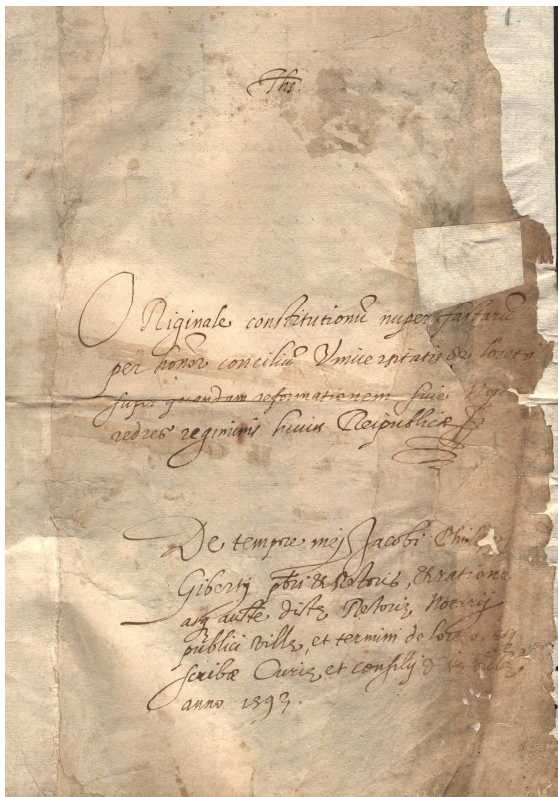 Jhs.
ORiginale constitutionũ nuper factarũ
per honor conciliũ Vniversitatis de loreto
super quandam reformationem sive
redres regiminis huius Reipublicæ
De tempore mej Jacobi
Giberti pbri & Rectoris, & ratione
dictæ Rectoriæ Notarij
publici villæ, et termini de
scribæ Curiæ et consilij villæ
anno 1593.